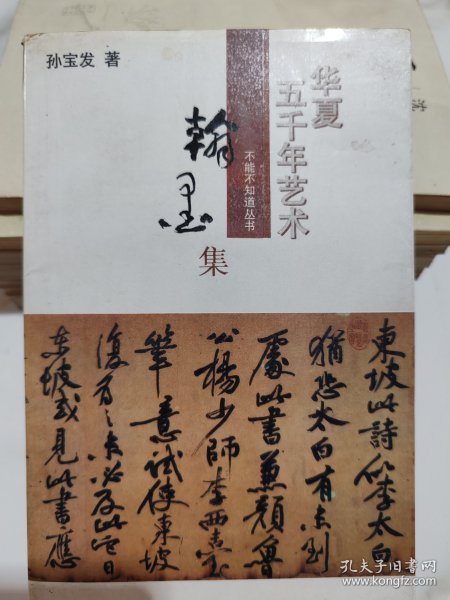 孙宝发 著
华夏
五千年艺术
不能不知道丛书
翰墨
集
東坡此詩似李太白
猶恐太白有未到
處此書兼顏魯
公楊少師李西臺
筆意試使東坡
復為之未必及此它日
東坡或見此書應
孔夫子旧书网
www.kongfz.com